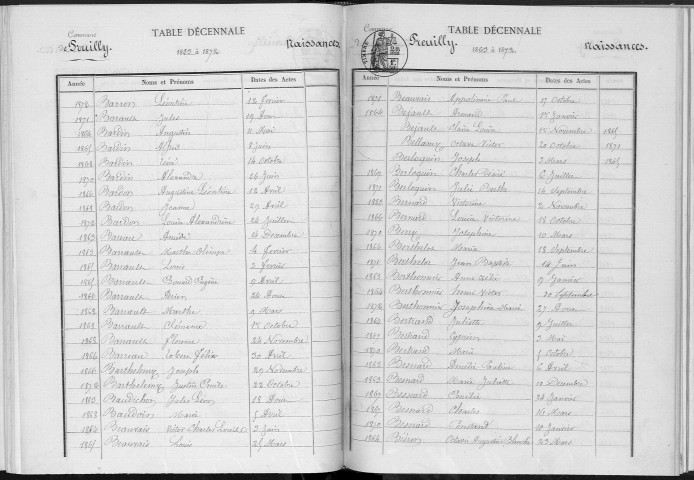 Commune
de Preuilly.
TABLE DÉCENNALE
1863 à 1872
Naissances
Année Noms et Prénoms Dates des Actes
1872 Barron Léontine 12 Février
1871 Barrault Jules 19 Aout
1864 Bardin Augustin 11 Mai
1865 Bardin 8 Juin
1868 Bardin René 14 Octobre
1870 Bardon Alexandre 26 Juin
1866 Bardon Augustine Léontine 12 Avril
1868 Bardon Jeanne 29 Avril
1872 Bardon Louis Alexandrine 24 Juillet
1863 Bareau 4 Décembre
1863 Barrault Marthe 4 Février
1865 Barrault Louis 2 Février
1865 Barrault Eugène 9 Avril
1866 Barrault 24 Aout
1868 Barrault Marthe 4 Mars
1868 Barrault Clémence 15 Octobre
1868 Barrault Florine 24 Novembre
1866 Barreau Félix 30 Avril
1866 Barthelemy Joseph 29 Novembre
1872 Barthelemy 22 Octobre
1863 Baudichon Jules Léon 13 Aout
1868 Baudoin Marie 5 Avril
1864 Beauvais Victor Charles 3 Juin
1865 Beauvais Louis 25 Mars
Commune
Preuilly.
TABLE DÉCENNALE
1863 à 1872
Naissances.
Année Noms et Prénoms Dates des Actes
1871 Beauvais Appolinaire Paul 17 Octobre
1864 Bejault Armand 15 Janvier
Bejault 15 Novembre 1865
Bellamy Octave Victor 20 Octobre 1871
Berloquin Joseph 3 Mars 1865
1869 Berloquin Charles Désiré 6 Juillet
1871 Berloquin Julie Berthe 16 Septembre
1868 Bernard Victorine 2 Novembre
1866 Bernard Louise Victorine 18 Octobre
1870 Berry Joséphine 10 Mars
1866 Berthelot Maria 13 Septembre
1871 Berthelot Jean Baptiste 14 Juin
1863 Berthonnier Anne 9 Janvier
1864 Berthonnier Victor 30 Septembre
1872 Berthonnier Joséphine Marie 27 Aout
1864 Bertrand Juliette 9 Juillet
1867 Bertrand 3 Mai
1870 Bertrand Marie 5 Octobre
1863 Besnard Amélie Pauline 6 Avril
1863 Besnard Marie Juliette 10 Décembre
1867 Besnard Emilie 24 Janvier
1869 Besnard Charles 16 Mars
1870 Besnard Constant 10 Janvier
1864 Octave Auguste 23 Mars